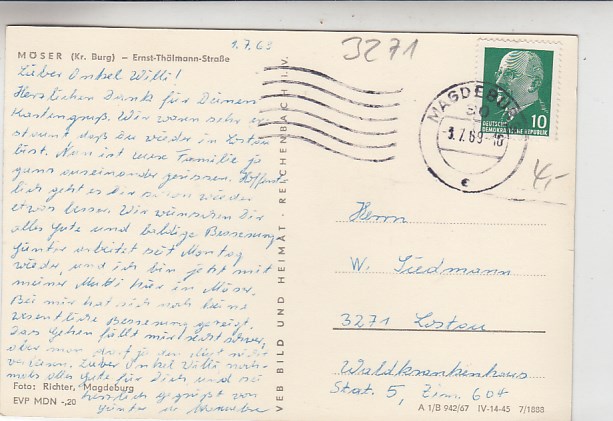 1.7.69
3271
MÖSER (Kr. Burg) – Ernst-Thälmann-Straße
Lieber Onkel Willi!
Herzlichen Dank für Deinen
Kartengruß. Wir waren sehr er-
staunt daß Du wieder in Lostau
bist. Nun ist eure Familie ja
ganz auseinander gerissen. Hoffent-
lich geht es Dir schon wieder
etwas besser. Wir wünschen Dir
alles Gute und baldige Besserung
Günter arbeitet seit Montag
wieder, und ich bin jetzt mit
meiner Mutti hier in Möser.
Bei mir hat sich noch keine
wesentliche Besserung gezeigt,
das Gehen fällt mir sehr schwer,
aber man darf ja den Mut nicht
verlieren. Lieber Onkel Willi noch-
mals alles Gute für Dich und sei
herzlich gegrüßt von
Günter u.
Foto: Richter, Magdeburg
EVP MDN -,20
VEB BILD UND HEIMAT · REICHENBACH i. V.
MAGDEBURG
-3.7.69-16
DEUTSCHE
DEMOKRATISCHE REPUBLIK
10
4,-
Herrn
W. Siedmann
3271 Lostau
Waldkrankenhaus
Stat. 5, Zim. 604
A 1/B 942/67 IV-14-45 7/1888